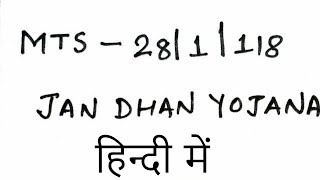 MTS - 28/1/1/8
JAN DHAN YOJANA
हिन्दी में